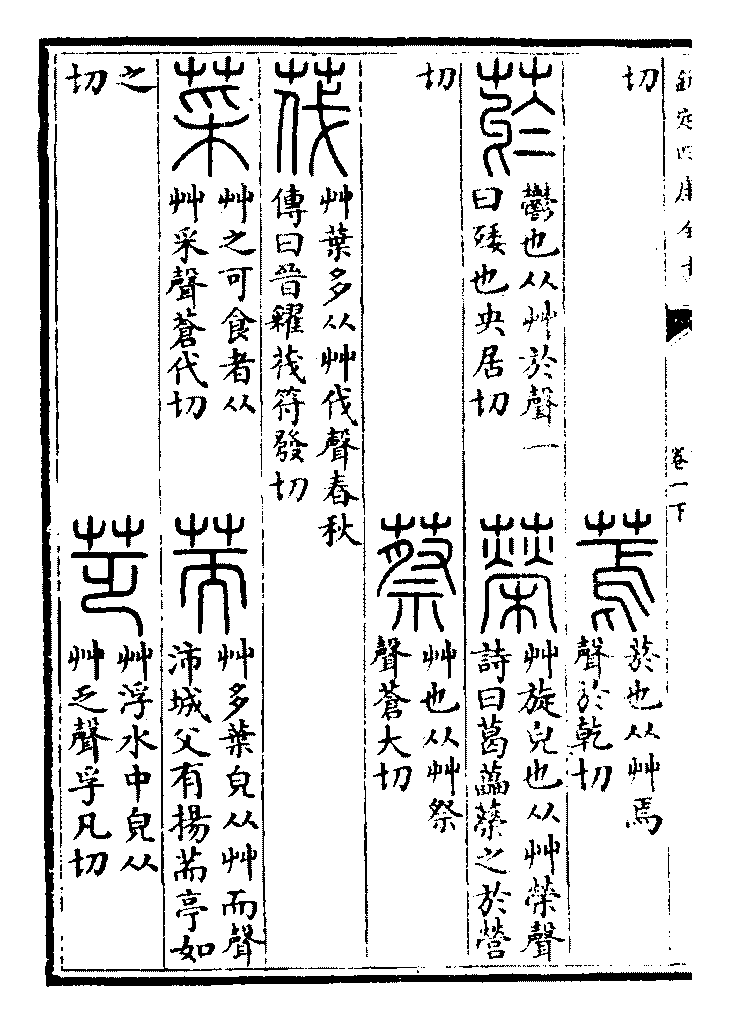 欽定四庫全書
卷一下
切
蔫
菸也从艸焉
聲於乾切
菸
鬱也从艸於聲一
曰矮也央居切
䕦
艸旋皃也从艸榮聲
詩曰葛藟䕦之於營
切
蔡
艸也从艸祭
聲蒼大切
茷
艸葉多从艸伐聲春秋
傳曰晉糴茷符發切
菜
艸之可食者从
艸采聲蒼代切
荋
艸多葉皃从艸而聲
沛城父有揚荋亭如
之
切
芝
艸浮水中皃从
艸乏聲孚凡切